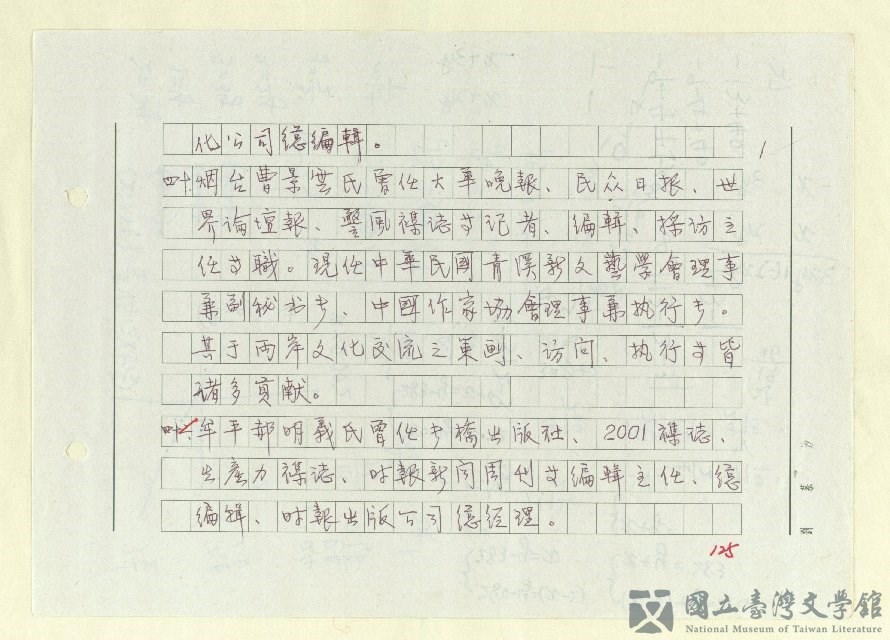 化公司總編輯。
四十、烟台曹景雲氏曾任大華晚報、民众日报、世
界論壇報、警風襍誌等记者、編輯、採访主
任等職。現任中華民國青溪新文藝學會理事
兼副秘书长、中國作家协會理事兼执行长。
其于两岸文化交流之策画、访问、执行等皆
诸多貢献。
四十一、牟平郝明義氏曾任长橋出版社、2001襍誌、
生產力襍誌、时報新闻周刊等編輯主任、總
編輯、时報出版公司總经理。
125
國立臺灣文學館
National Museum of Taiwan Literature